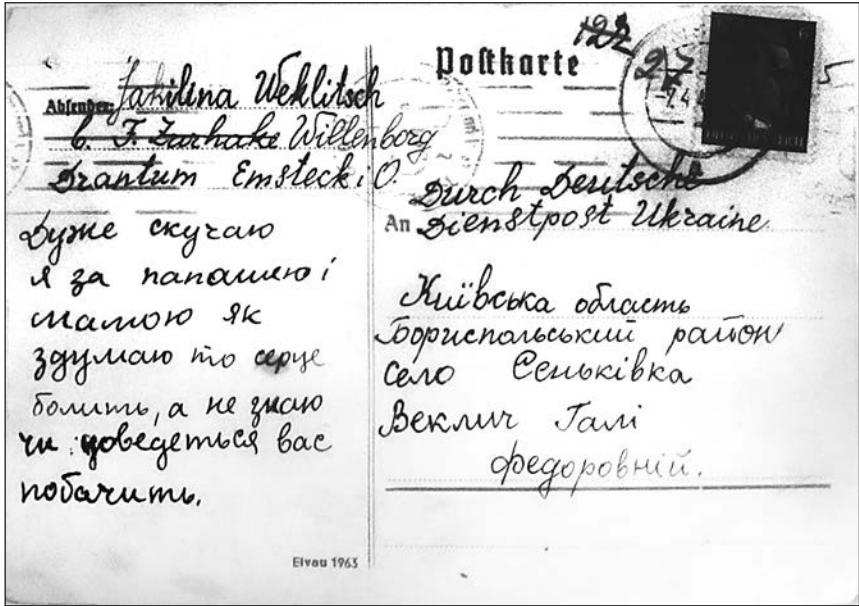 Postkarte
127
27
Absender: Jakilina Weklitsch
b. F. Zurhake Willenborg
Drantum Emsteck i. O.
Дуже скучаю
я за папашею і
мамою як
здумаю то серце
болить, а не знаю
чи доведеться вас
побачить.
Elvau 1963
Durch Deutsche
An Dienstpost Ukraine
Київська область
Бориспольський район
село Сеньківка
Веклич Галі
Федоровній.